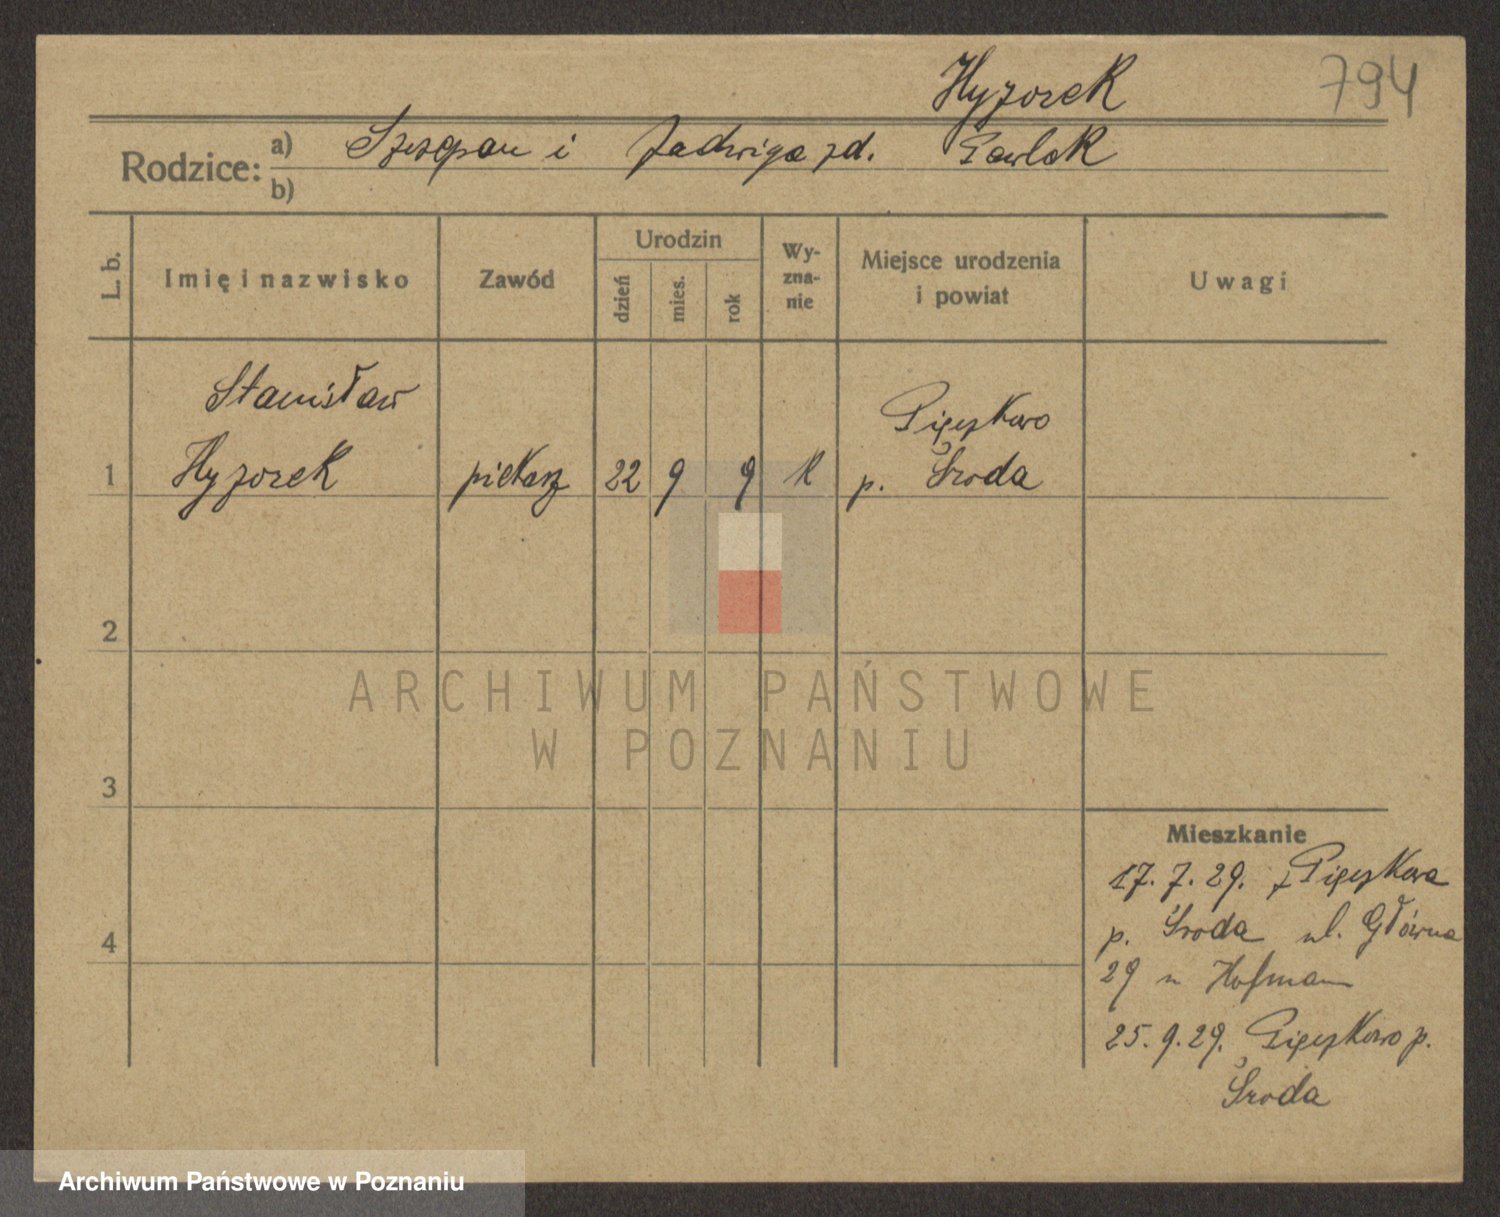 Hyzorek 794
Rodzice: a) Szczepan i Jadwiga zd. Pawlak
b)
L. b. Imię i nazwisko Zawód Urodzin dzień mies. rok Wy-zna-nie Miejsce urodzenia i powiat Uwagi
Stanisław Pięczkowo
1 Hyzorek piekarz 22 9 9 k p. Środa
2
ARCHIWUM PAŃSTWOWE
W POZNANIU
3
Mieszkanie
17. 7. 29. z Pięczkowa
4 p. Środa ul. Główna
29 u Hofmann
25. 9. 29. Pięczkowo p.
Środa
Archiwum Państwowe w Poznaniu